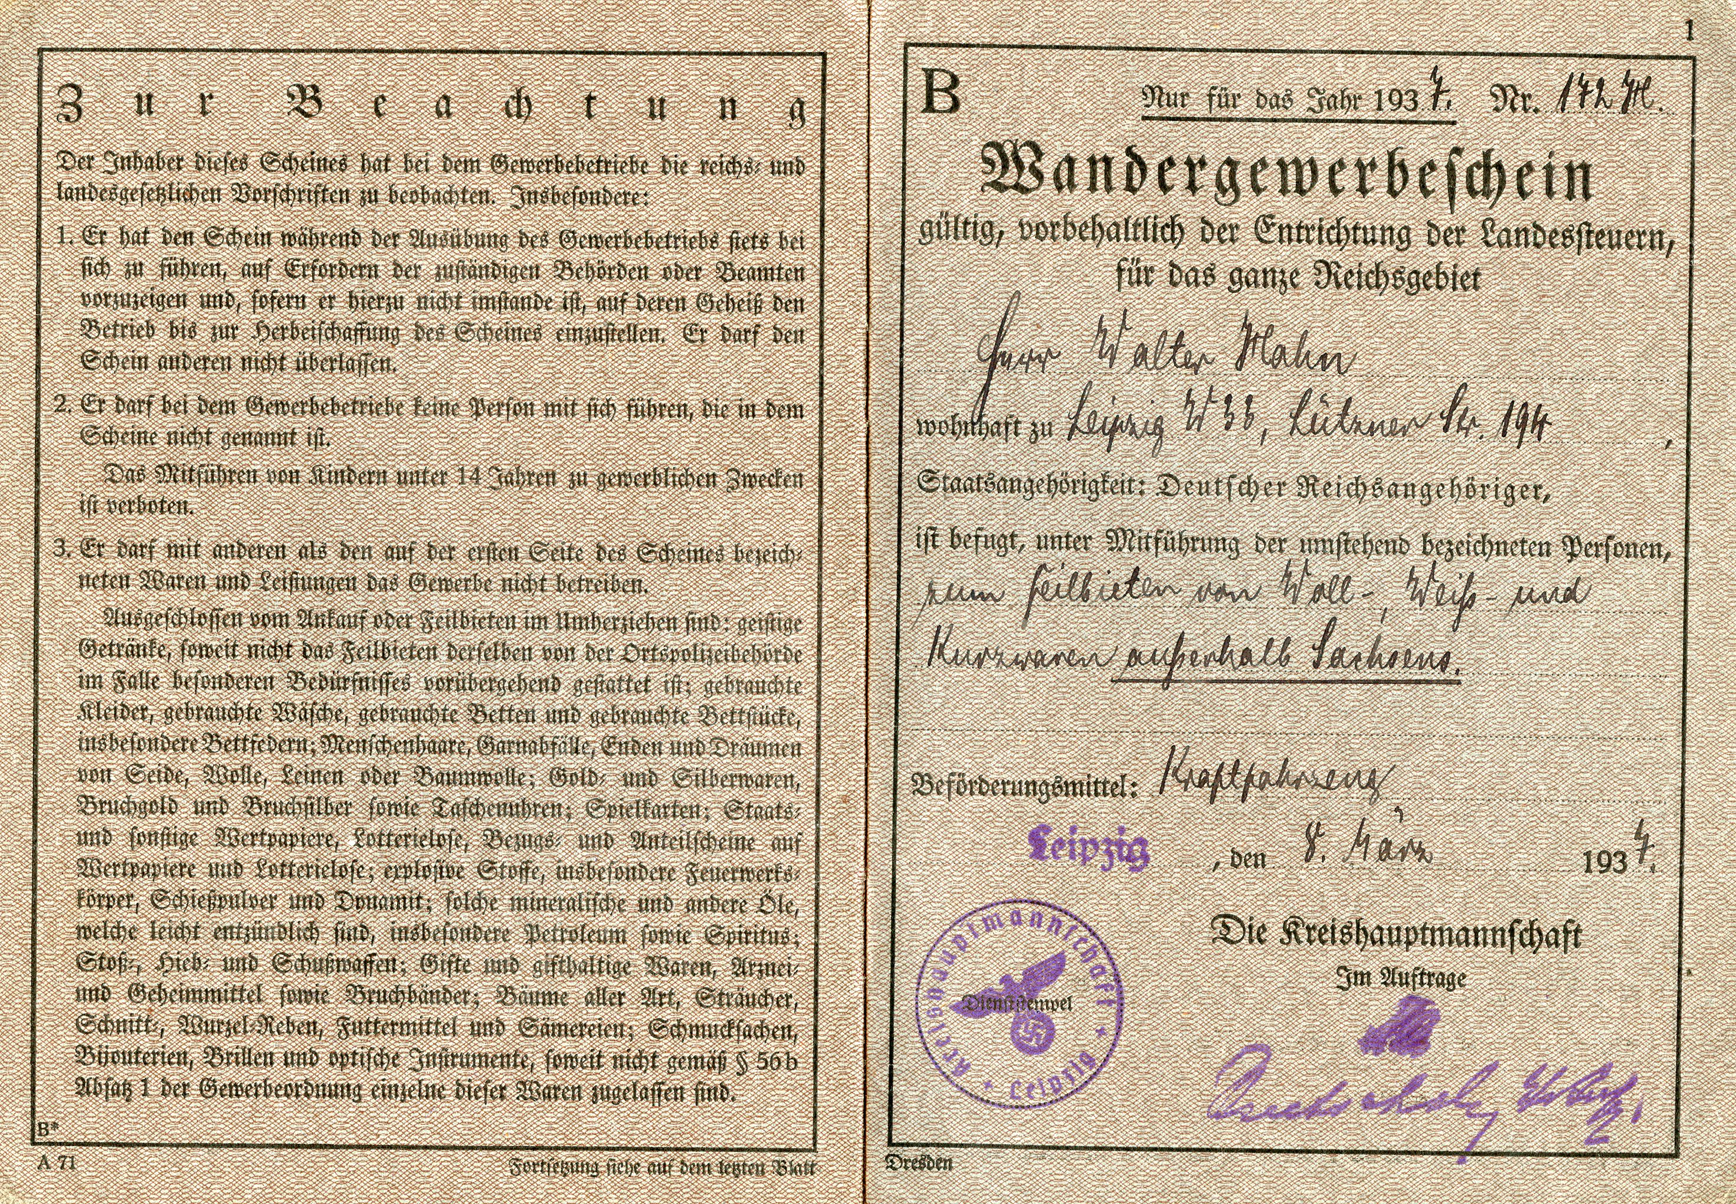 Zur Beachtung
Der Inhaber dieses Scheines hat bei dem Gewerbebetriebe die reichs- und
landesgesetzlichen Vorschriften zu beobachten. Insbesondere:
1. Er hat den Schein während der Ausübung des Gewerbebetriebs stets bei
sich zu führen, auf Erfordern der zuständigen Behörden oder Beamten
vorzuzeigen und, sofern er hierzu nicht imstande ist, auf deren Geheiß den
Betrieb bis zur Herbeischaffung des Scheines einzustellen. Er darf den
Schein anderen nicht überlassen.
2. Er darf bei dem Gewerbebetriebe keine Person mit sich führen, die in dem
Scheine nicht genannt ist.
Das Mitführen von Kindern unter 14 Jahren zu gewerblichen Zwecken
ist verboten.
3. Er darf mit anderen als den auf der ersten Seite des Scheines bezeich-
neten Waren und Leistungen das Gewerbe nicht betreiben.
Ausgeschlossen vom Ankauf oder Feilbieten im Umherziehen sind: geistige
Getränke, soweit nicht das Feilbieten derselben von der Ortspolizeibehörde
im Falle besonderen Bedürfnisses vorübergehend gestattet ist; gebrauchte
Kleider, gebrauchte Wäsche, gebrauchte Betten und gebrauchte Bettstücke,
insbesondere Bettfedern; Menschenhaare, Garnabfälle, Enden und Dräumen
von Seide, Wolle, Leinen oder Baumwolle; Gold- und Silberwaren,
Bruchgold und Bruchsilber sowie Taschenuhren; Spielkarten; Staats-
und sonstige Wertpapiere, Lotterielose, Bezugs- und Anteilscheine auf
Wertpapiere und Lotterielose; explosive Stoffe, insbesondere Feuerwerks-
körper, Schießpulver und Dynamit; solche mineralische und andere Öle,
welche leicht entzündlich sind, insbesondere Petroleum sowie Spiritus;
Stoß-, Hieb- und Schußwaffen; Gifte und gifthaltige Waren, Arznei-
und Geheimmittel sowie Bruchbänder; Bäume aller Art, Sträucher,
Schnitt-, Wurzel-Reben, Futtermittel und Sämereien; Schmucksachen,
Bijouterien, Brillen und optische Instrumente, soweit nicht gemäß § 56b
Absatz 1 der Gewerbeordnung einzelne dieser Waren zugelassen sind.
B*
A 71
Fortsetzung siehe auf dem letzten Blatt
1
B Nur für das Jahr 1937. Nr. 172 H.
Wandergewerbeschein
gültig, vorbehaltlich der Entrichtung der Landessteuern,
für das ganze Reichsgebiet
Herr Walter Hahn
wohnhaft zu Leipzig W 33, Lützner Str. 194,
Staatsangehörigkeit: Deutscher Reichsangehöriger,
ist befugt, unter Mitführung der umstehend bezeichneten Personen,
zum Feilbieten von Woll-, Weiß- und
Kurzwaren außerhalb Sachsens.
Beförderungsmittel: Kraftfahrzeug
Leipzig, den 8. März 1937.
Die Kreishauptmannschaft
Im Auftrage
Kreishauptmannschaft * Leipzig *
Dienststempel
Dresden